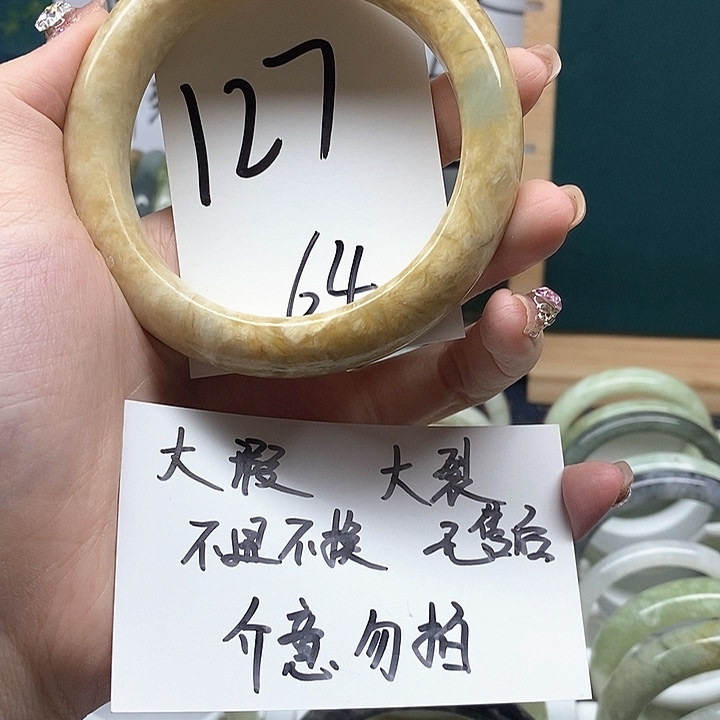 127
64
大瑕 大裂
不退不换 无售后
介意勿拍